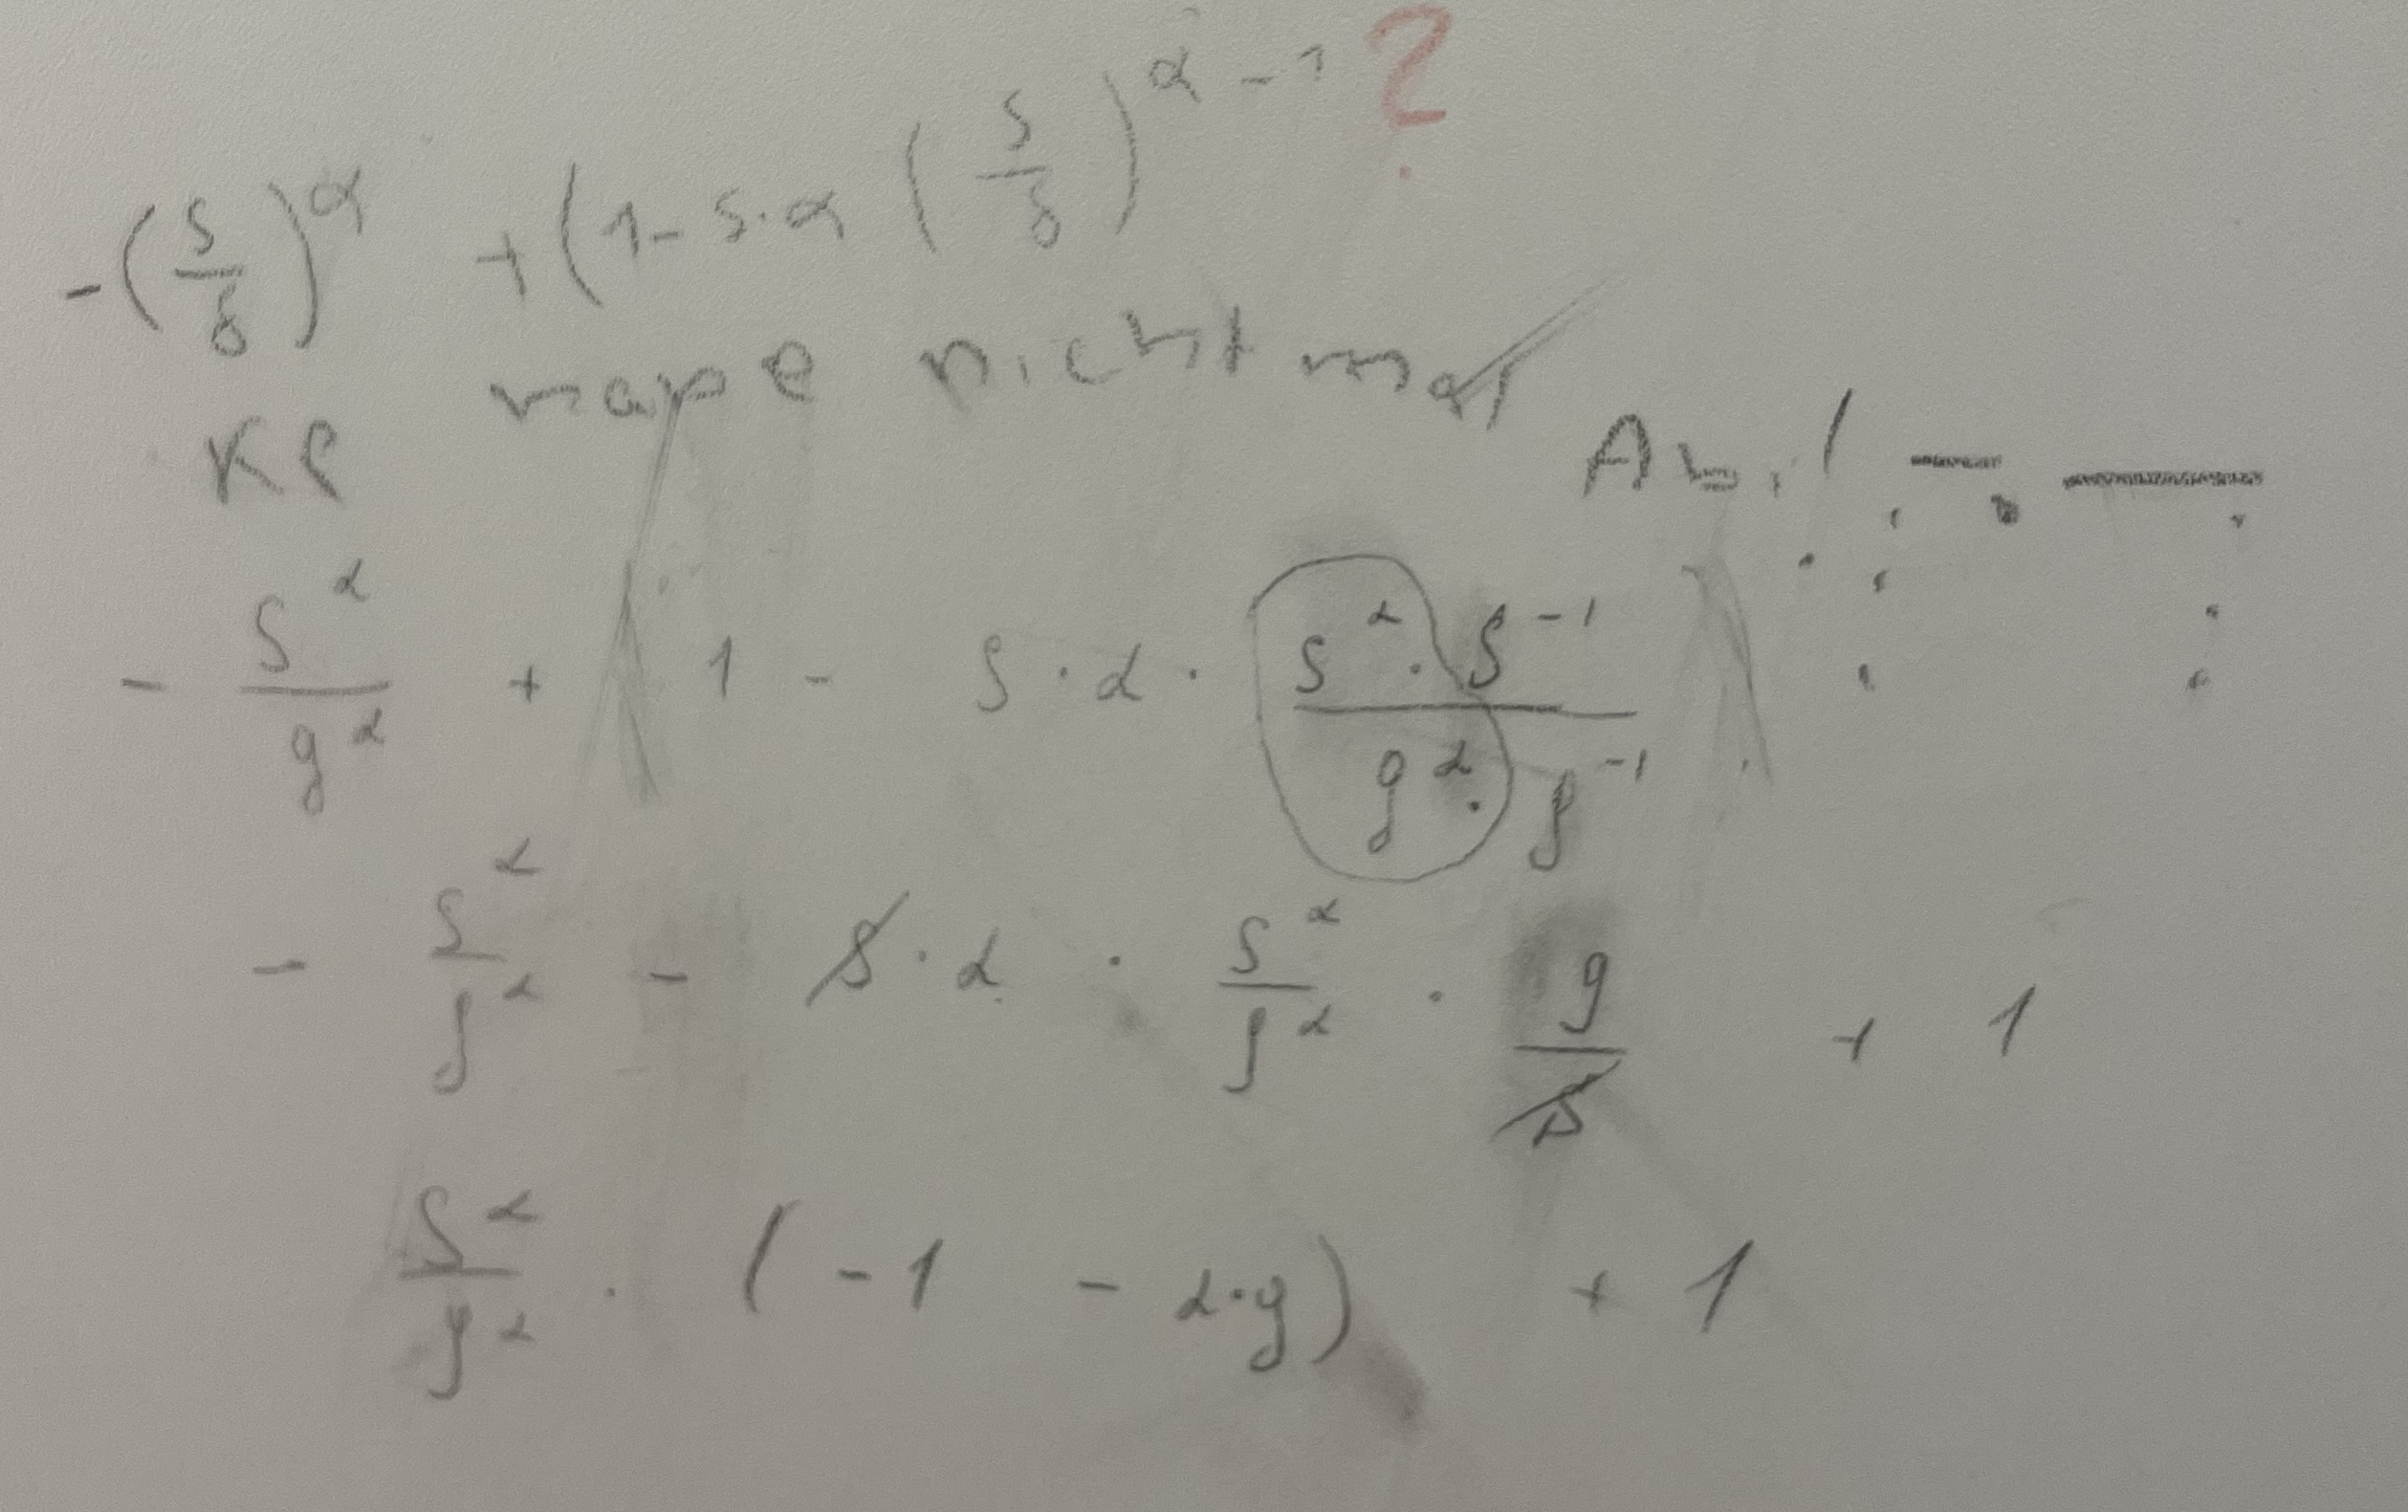 -(s/8)^α + (1 - s·α (s/8)^α-1 ?
KP nicht
Ab.!
- s^α/g^α + 1 - s·α· s^α · s^-1 / g^α · g^-1
- s^α/g^α - s·α · s^α/g^α · g/s + 1
s^α/g^α · (-1 - α·g) + 1